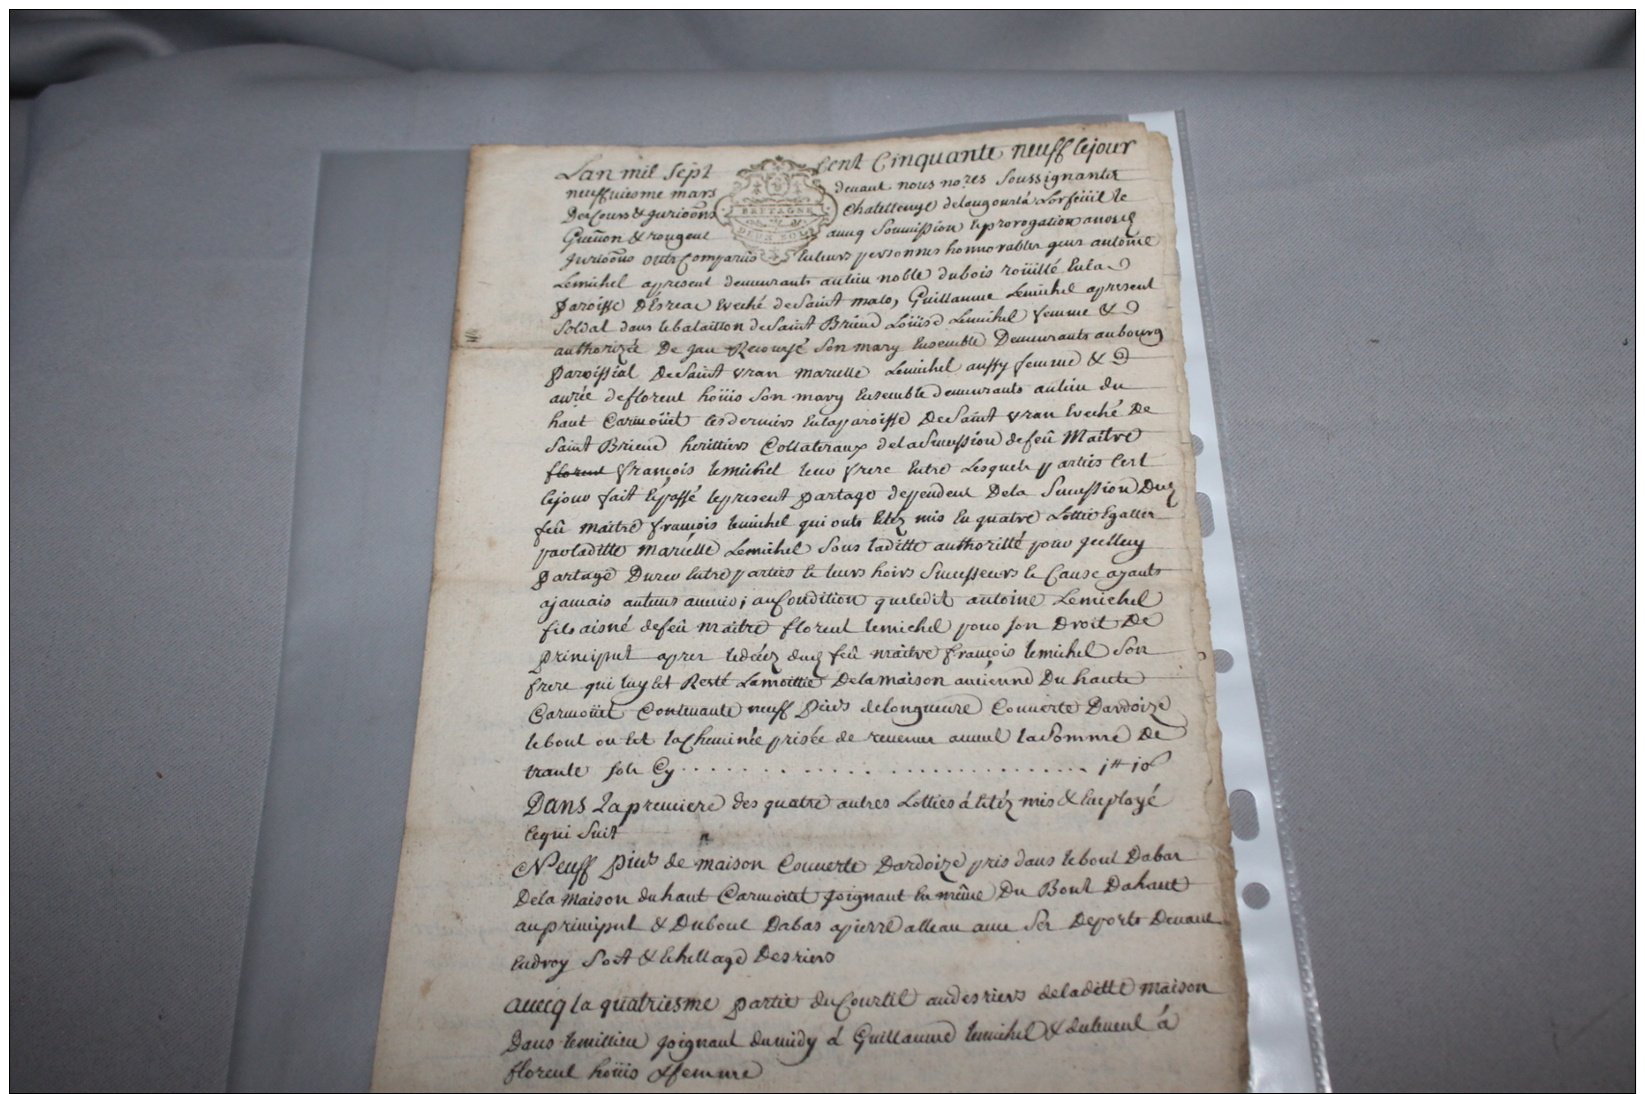 Lan mil sept cent Cinquante neuff le jour
neuffuiesme mars devant nous no.res soussignants
Des Cours & jurisons BRETAGNE Chatellenye de Laugourla Lorfeüil le
Guenon & rougeul DEUX SOLS avecq soumission & prorogation a nosd
jurisons ont Comparüs leleurs personnes honnorables gens antoine
Lemichel apresent demeurants au lieu noble du bois roüillé en la
Paroisse Deereac Eveché de Saint malo, Guillaume Lemichel apresent
Soldat dans le bataillon de Saint Brieuc Loüise Lemichel femme & D
authorizée De jan Recoursé Son mary Ensemble Demeurants au bourg
Paroissial De Saint vran marielle Lemichel aussy femme & D
aurée de florent hoüis Son mary Ensemble demeurants au lieu du
haut Carmoüet les derniers En la paroisse De Saint vran Eveché De
Saint Brieuc heritiers Collateraux de la Sucession de feu Maitre
florent françois lemichel leur frere Entre Lesquels parties C'est
le jour fait & passé le present partage deppendent De la Sucession Dud
feu maitre françois lemichel qui onts Etéz mis En quatre Lottie Egalles
par laditte marielle Lemichel Sous laditte authoritté pour jcelluy
partage Durer Entre parties & leurs hoirs Sucesseurs & Cause ayants
ajamais autems avenir; au Condition que ledit antoine Lemichel
fils aisné de feu maitre florent lemichel pour son Droit De
principut apres le décéz dud feu maitre françois lemichel Son
frere qui luy Est Resté La moittie De la maison ancienne Du haute
Carmoüet Contenante neuff pieds de longueure Couverte Dardoize
le bout ou Est la Cheminée prisée de revenu annuel la Somme De
trante sols Cy . . . . . . . . . . . . . . . . . . . . . . 1tt 10s
Dans La premiere des quatre autres Lotties á Etéz mis & Employé
Ce qui Suit
Neuff pieds de maison Couverte Dardoize pris dans le bout Dabas
De la maison du haut Carmoüet joignant En même Du Bout Dahaut
au principut & Du bout Dabas a pierre alleau avec Ses Deports Devant
Endroy Soit & Echellage Desriers
avecq la quatriesme partie du Courtil au desriers de laditte maison
Dans le millieu joignant du midy á Guillaume lemichel & du levent á
florent hoüis & femme